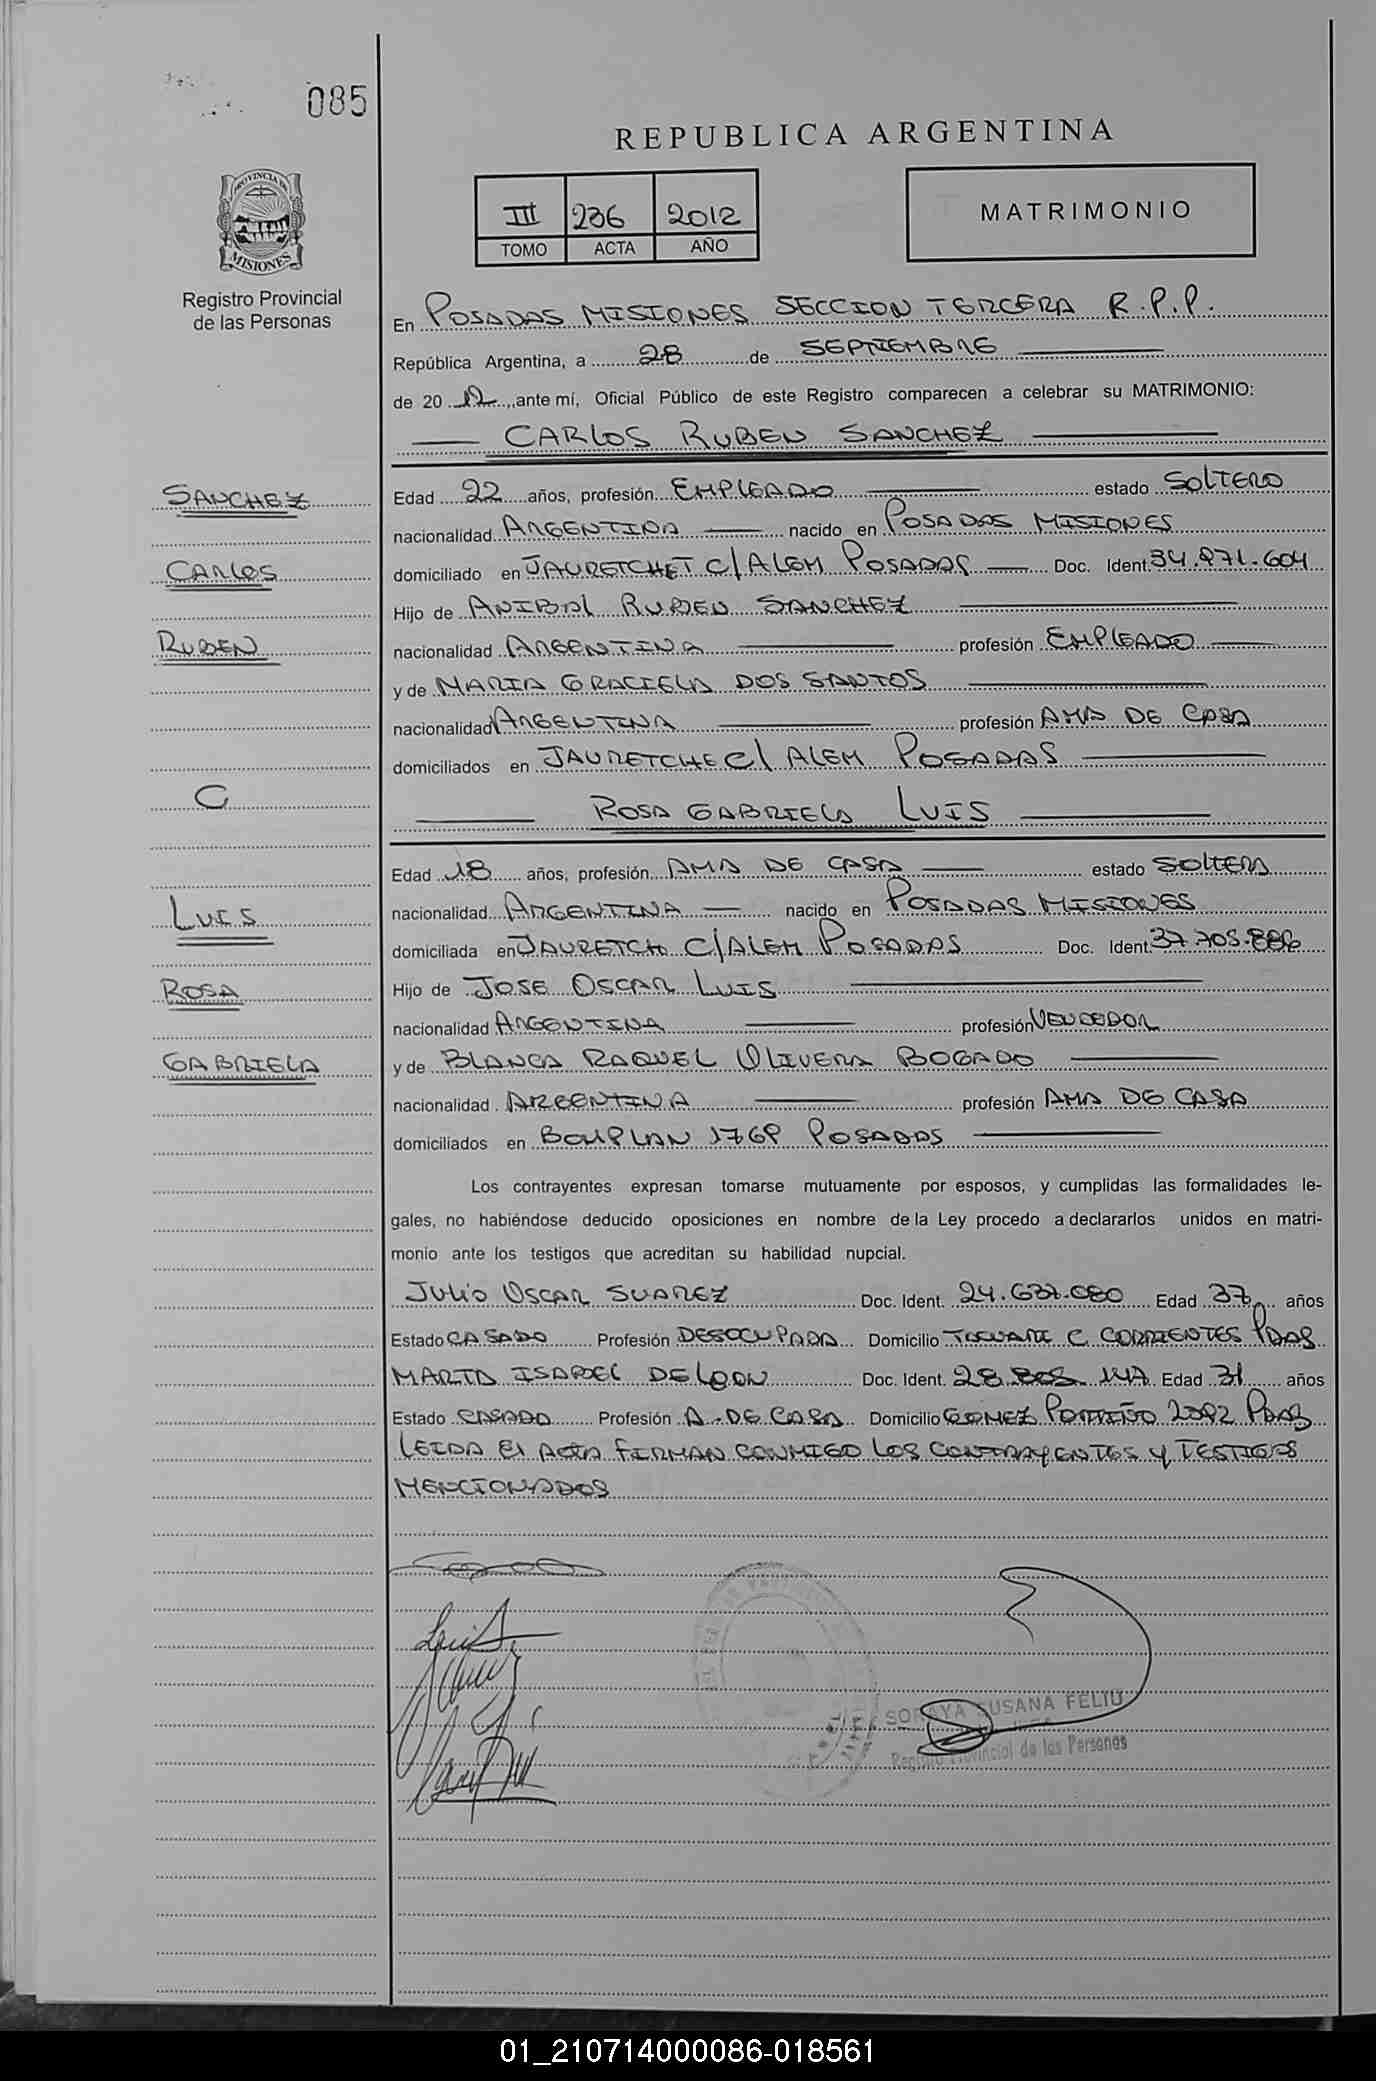 085
REPUBLICA ARGENTINA
PROVINCIA DE
MISIONES
Registro Provincial
de las Personas
III 236 2012
TOMO ACTA AÑO
MATRIMONIO
En POSADAS MISIONES SECCION TERCERA R.P.P.
República Argentina, a 28 de SEPTIEMBRE
de 20 12, ante mí, Oficial Público de este Registro comparecen a celebrar su MATRIMONIO:
CARLOS RUBEN SANCHEZ
SANCHEZ
Edad 22 años, profesión EMPLEADO estado SOLTERO
nacionalidad ARGENTINA nacido en POSADAS MISIONES
CARLOS
domiciliado en JAURETCHET C/ALEM POSADAS Doc. Ident. 34.971.604
Hijo de ANIBAL RUBEN SANCHEZ
RUBEN
nacionalidad ARGENTINA profesión EMPLEADO
y de MARIA GRACIELA DOS SANTOS
nacionalidad ARGENTINA profesión AMA DE CASA
domiciliados en JAURETCHE C/ ALEM POSADAS
C
ROSA GABRIELA LUIS
Edad 18 años, profesión AMA DE CASA estado SOLTERA
LUIS
nacionalidad ARGENTINA nacido en POSADAS MISIONES
domiciliada en JAURETCH C/ALEM POSADAS Doc. Ident. 37.705.886
ROSA
Hijo de JOSE OSCAR LUIS
nacionalidad ARGENTINA profesión VENDEDOR
GABRIELA
y de BLANCA RAQUEL OLIVERA BOGADO
nacionalidad ARGENTINA profesión AMA DE CASA
domiciliados en BOMPLAN 1769 POSADAS
Los contrayentes expresan tomarse mutuamente por esposos, y cumplidas las formalidades le-
gales, no habiéndose deducido oposiciones en nombre de la Ley procedo a declararlos unidos en matri-
monio ante los testigos que acreditan su habilidad nupcial.
JULIO OSCAR SUAREZ Doc. Ident. 24.637.080 Edad 37 años
Estado CASADO Profesión DESOCUPADA Domicilio C CORRIENTES PDAS
MARIA ISABEL DE LEON Doc. Ident. 28. Edad 31 años
Estado CASADO Profesión A. DE CASA Domicilio GOMEZ PORTIÑO PDAS
LEIDA EL ACTA FIRMAN CONMIGO LOS CONTRAYENTES Y TESTIGOS
MENCIONADOS
SORAYA SUSANA FELIU
Registro Provincial de las Personas
01_210714000086-018561